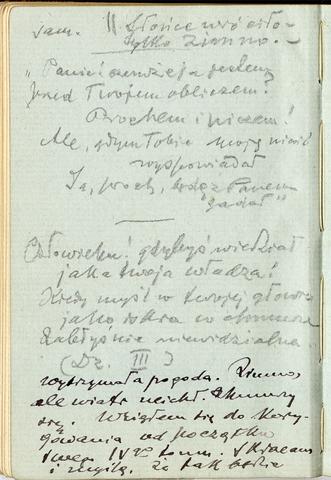 sam. || Słońce wróciło -
tylko zimno. -
"Panie! czemże ja jestem
przed Twojem obliczem?
Prochem i niczem!
Ale, gdym Tobie moją nicość
wyspowiadał
Ja, proch, będę z Panem
gadał"
Człowieku! gdybyś wiedział
jaka twoja władza!
Kiedy myśl w twojej głowie
jako iskra w chmurze
Zabłyśnie niewidzialna
(Dz. III)
wytrzymała pogoda. Zimno,
ale wiatr ucichł. Chmurzy
się. Wziąłem się do kory-
gowania od początku
IV tomu. Skracam
i myślę, że tak będzie